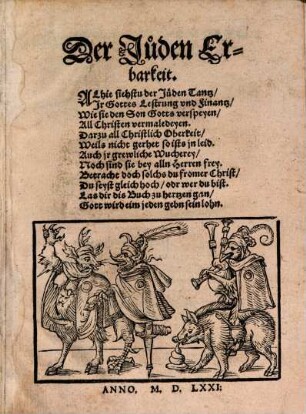 Der Jüden Er-
barkeit.
Alhie sichstu der Jüden Tantz/
Jr Gottes Lestrung vnd Finantz/
Wie sie den Son Gotts verspeyen/
All Christen vermaledeyen.
Darzu all Christlich Oberkeit/
Weils nicht gerhet so ists jn leid.
Auch jr grewliche Wucherey/
Noch sind sie bey alln Herren frey.
Betracht doch solchs du fromer Christ/
Du seyst gleich hoch/ odr wer du bist.
Las dir dis Buch zu hertzen gan/
Gott wird eim jeden gebn sein lohn.
ANNO, M. D. LXXI.